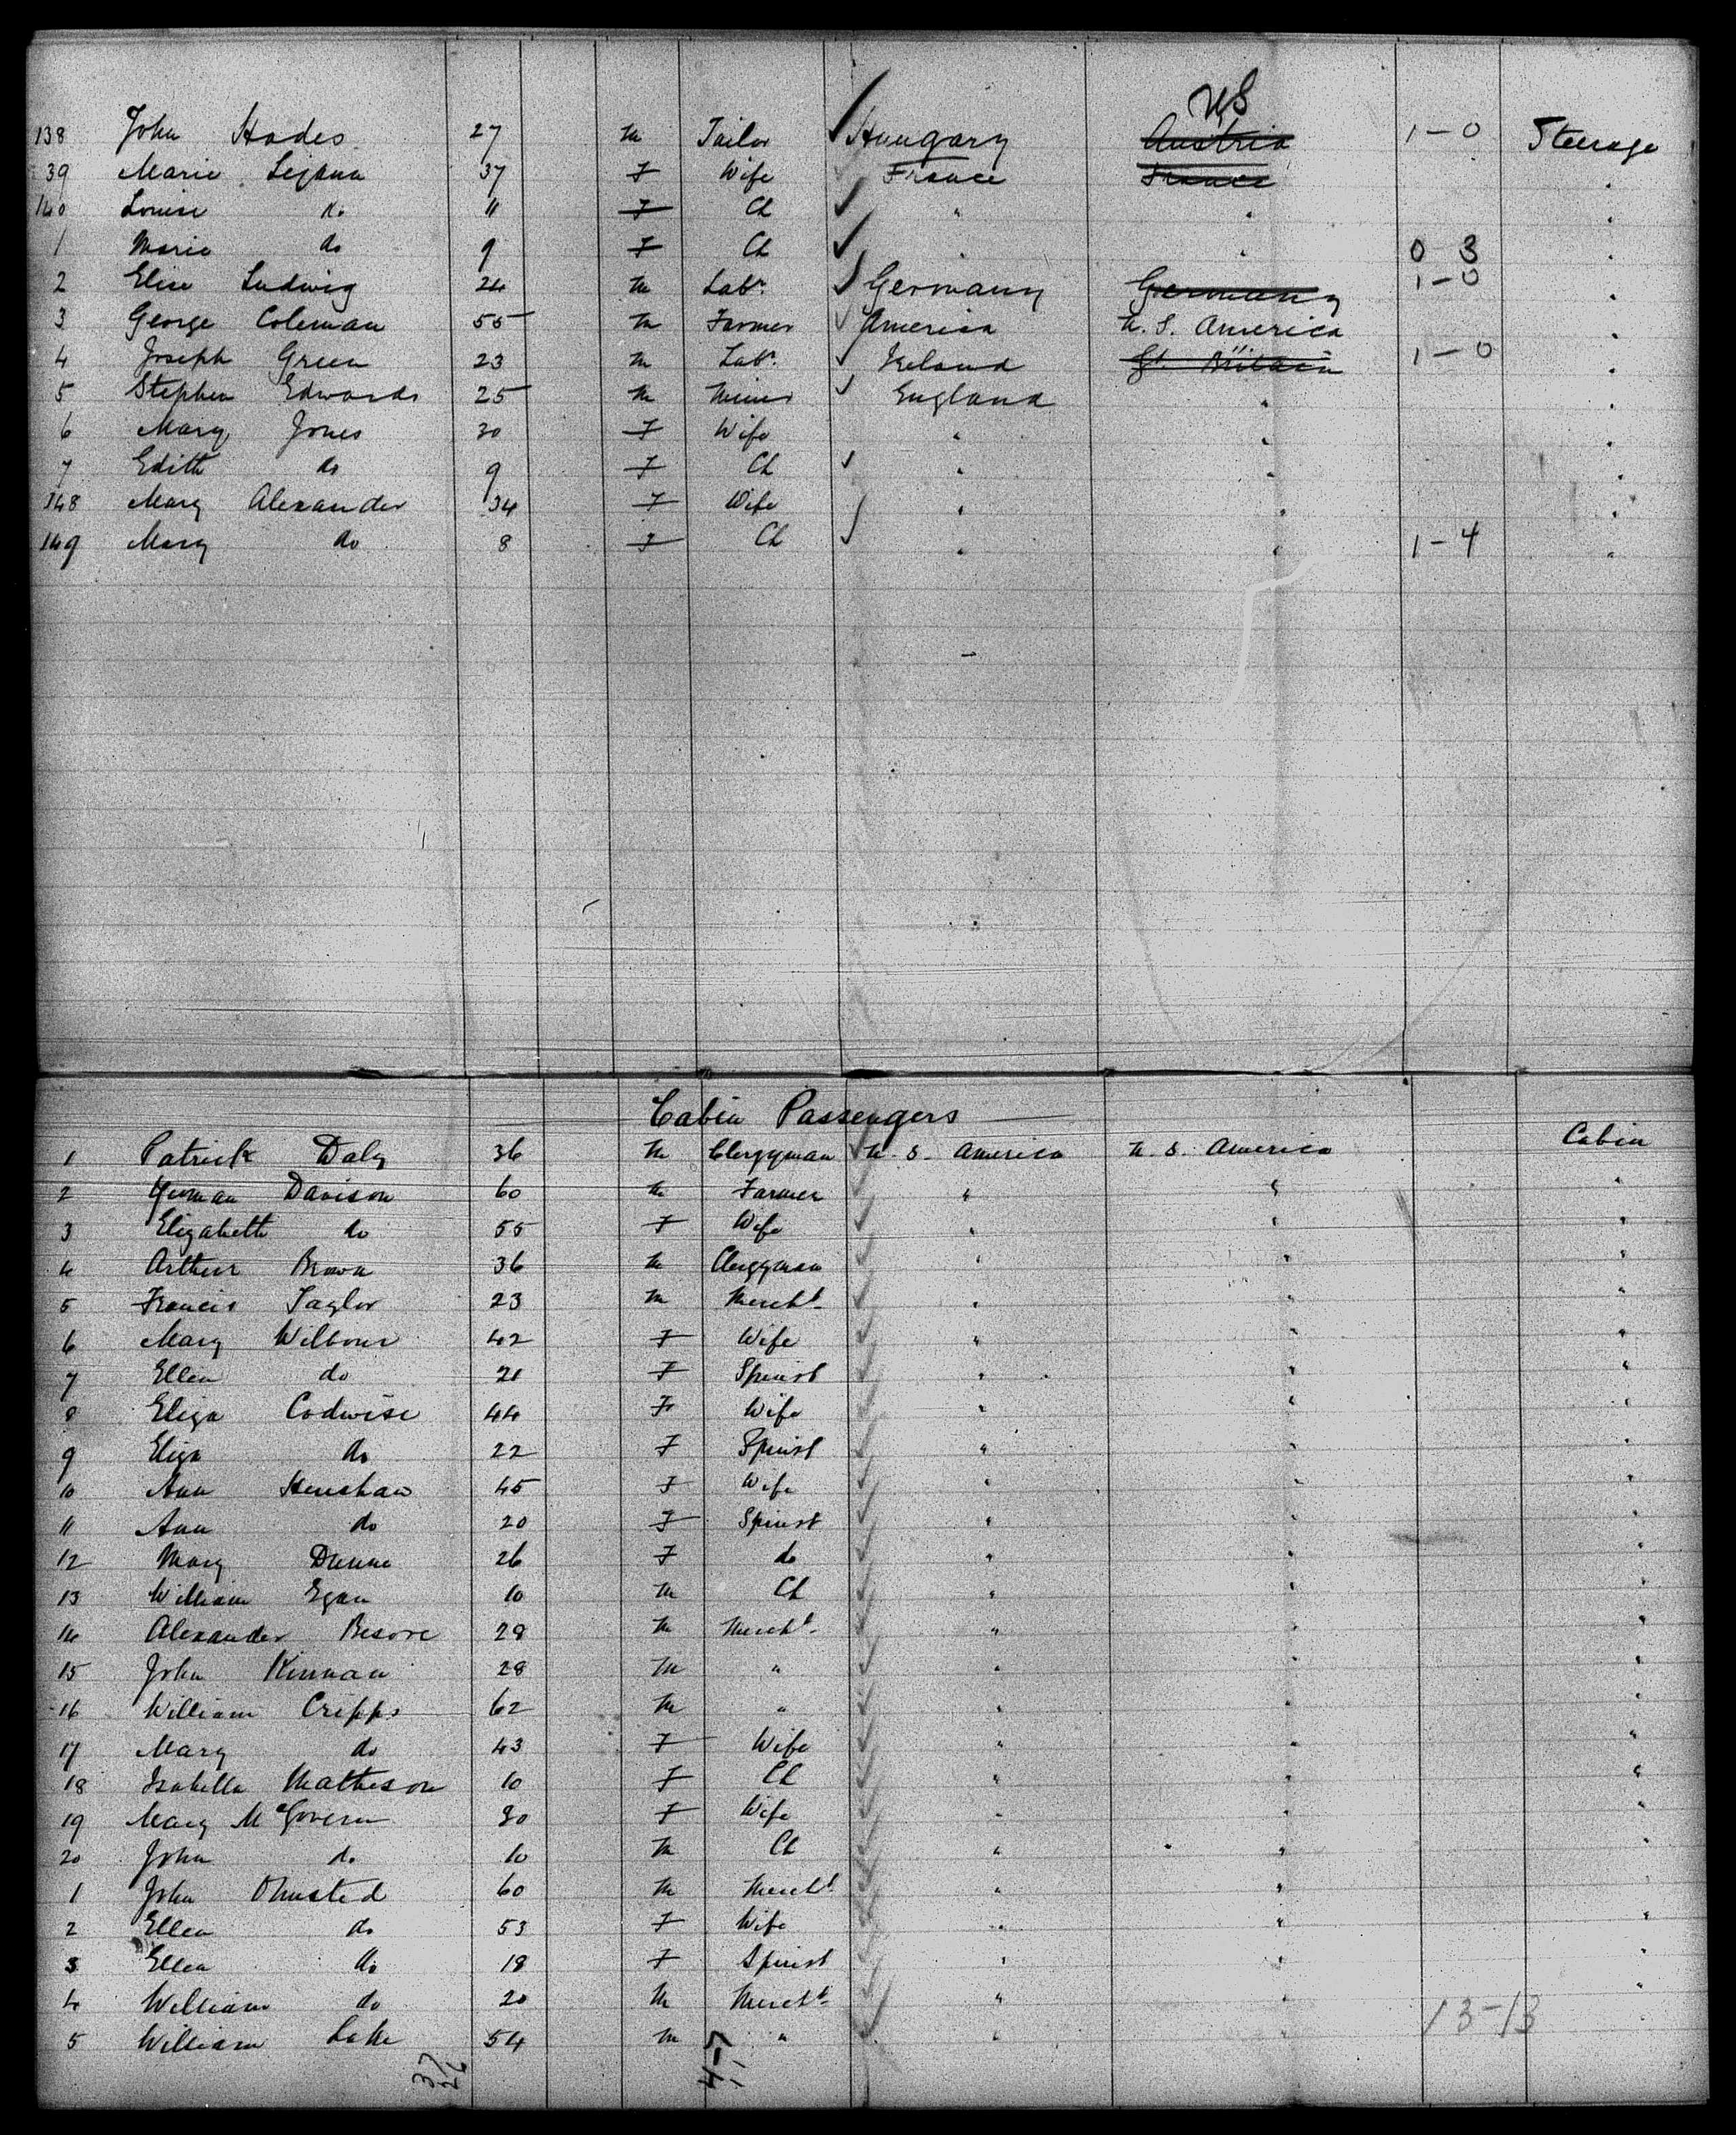 US
138 John Hades 27 M Tailor Hungary Austria 1-0 Steerage
39 Marie Lejann 37 F Wife France France "
140 Louise do 11 F Ch " " "
1 Marie do 9 F Ch " " 0 3 "
2 Elise Ludwig 24 M Labr Germany Germany 1-0 "
3 George Coleman 55 M Farmer America U.S. America "
4 Joseph Green 23 M Labr Ireland Gt. Britain 1-0 "
5 Stephen Edwards 25 M Miner England " "
6 Mary Jones 30 F Wife " " "
7 Edith do 9 F Ch " " "
148 Mary Alexander 34 F Wife " " "
149 Mary do 8 F Ch " " 1-4 "
Cabin Passengers
1 Patrick Daly 36 M Clergyman U.S. America U.S. America Cabin
2 Davison 60 M Farmer " " "
3 Elizabeth do 55 F Wife " " "
4 Arthur Brown 36 M Clergyman " " "
5 Francis Taylor 23 M Mercht " " "
6 Mary Wilbour 42 F Wife " " "
7 Ellen do 21 F Spinst " " "
8 Eliza Codwise 44 F Wife " " "
9 Eliza do 22 F Spinst " " "
10 Ann Henshaw 45 F Wife " " "
11 Ann do 20 F Spinst " " "
12 Mary Dunne 26 F do " " "
13 William Egan 10 M Ch " " "
14 Alexander Besore 28 M Mercht " " "
15 John Kinnan 28 M " " " "
16 William Cripps 62 M " " " "
17 Mary do 43 F Wife " " "
18 Isabella Matheson 10 F Ch " " "
19 Mary McGovern 30 F Wife " " "
20 John do 10 M Ch " " "
1 John Olmsted 60 M Mercht " " "
2 Ellen do 53 F Wife " " "
3 Ellen do 18 F Spinst " " "
4 William do 20 M Mercht " " "
5 William Lake 54 M " " " 13-13